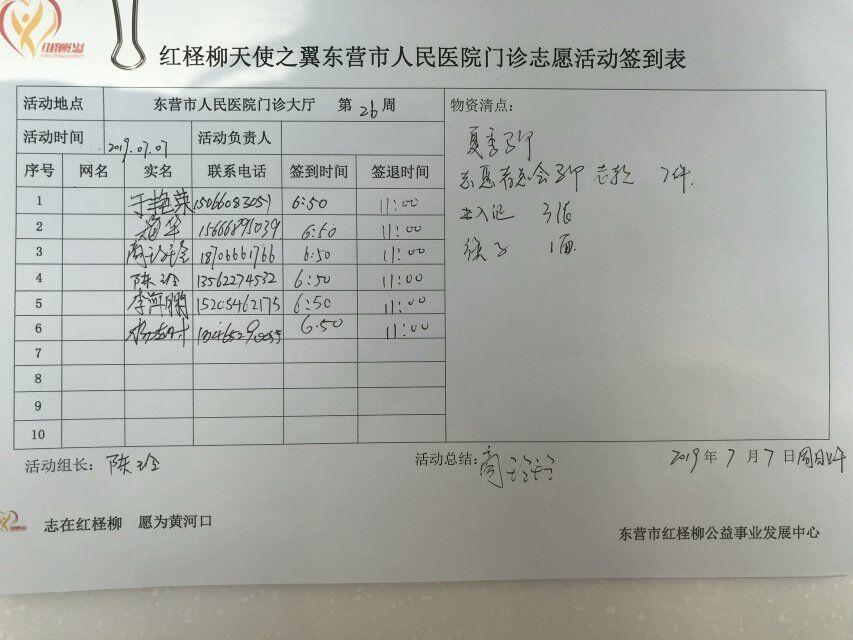 红柽柳公益
红柽柳天使之翼东营市人民医院门诊志愿活动签到表
活动地点 东营市人民医院门诊大厅 第26周 物资清点:
活动时间 2019.07.07 活动负责人
夏季
序号 网名 实名 联系电话 签到时间 签退时间
7件.
1 于艳荣 15066083059 6:50 11:00
2 华 15666895039 6:50 11:00
3 18706661766 6:50 11:00
1面
4 陈玲 13562274532 6:50 11:00
5 李 15205462175 6:50 11:00
6 杨 6:50 11:00
7
8
9
10
活动组长: 陈玲 活动总结: 2019年7月7日周日上午
志在红柽柳 愿为黄河口
东营市红柽柳公益事业发展中心